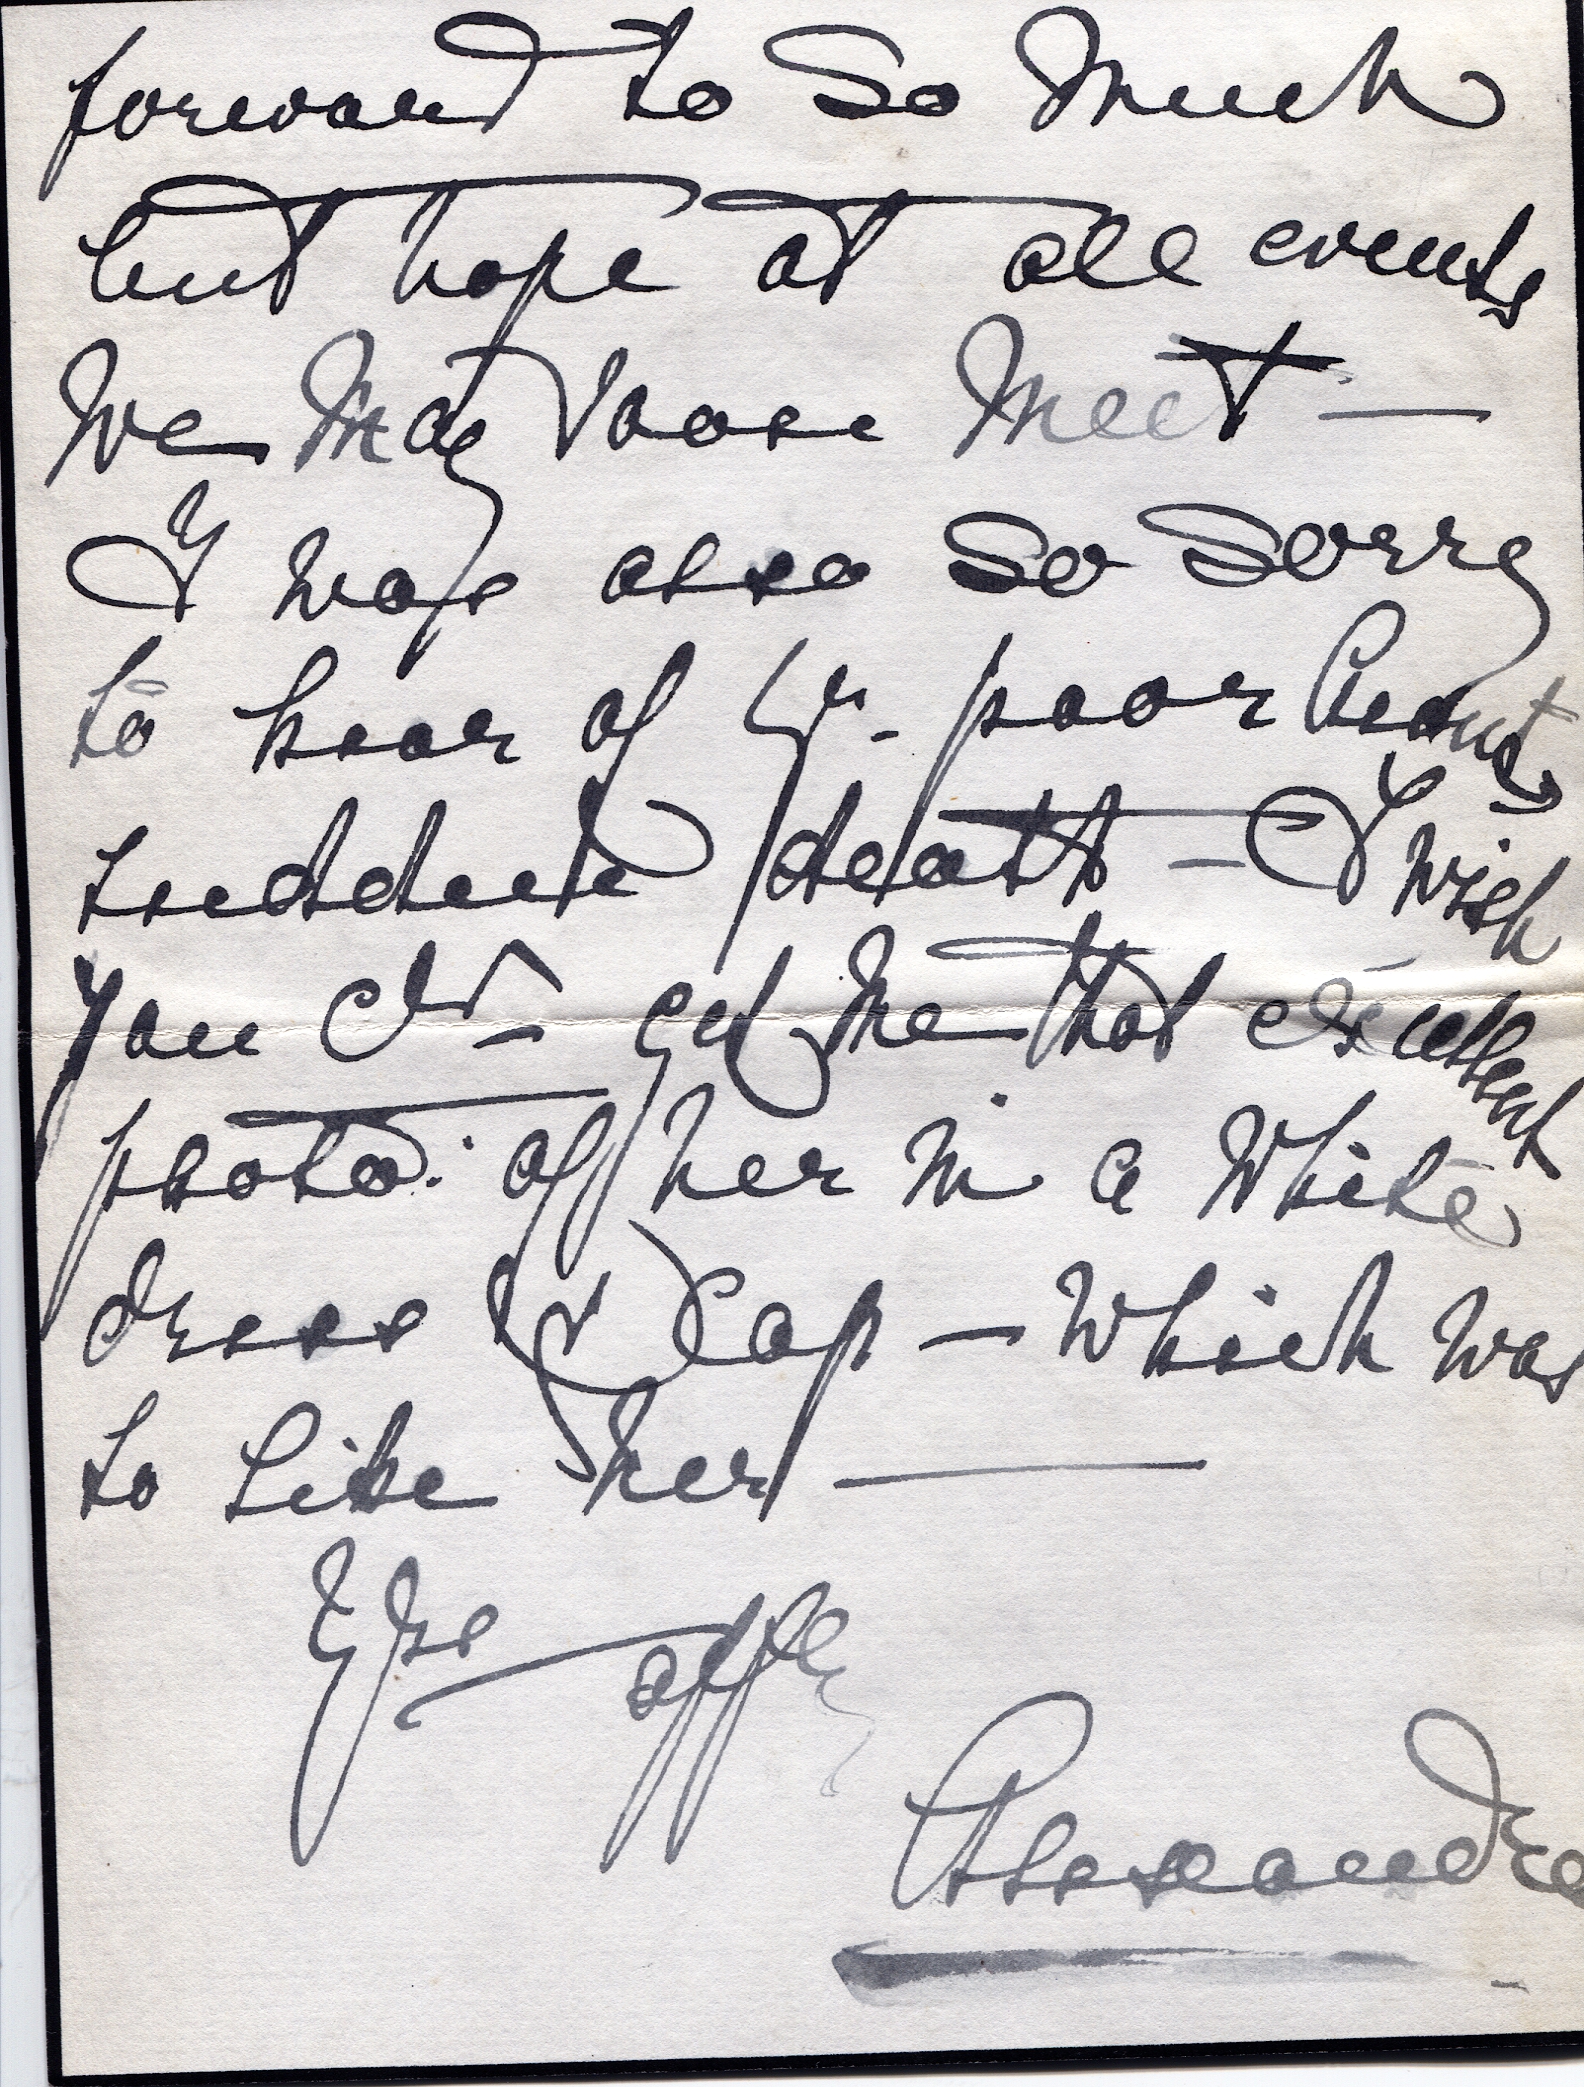 forward to so much
but hope at all events
we may soon meet —
I was also so sorry
to hear of yr. poor Aunt's
sudden death — I wish
you cd. get me that excellent
photo: of her in a white
dress & cap — which was
so like her —
Yrs affly
Alexandra